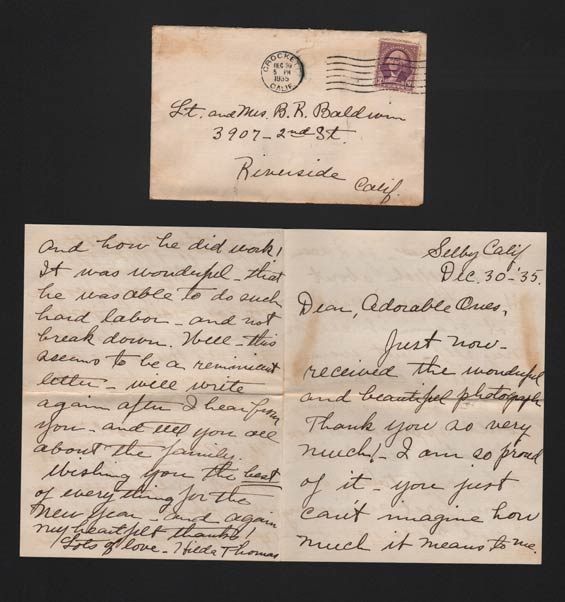 CROCKETT
DEC 30
5 PM
1935
CALIF.
Lt. and Mrs. B. R. Baldwin
3907 - 2nd St.
Riverside
Calif.
and how he did work!
It was wonderful - that
he was able to do such
hard labor - and not
break down. Well - this
seems to be a reminiscent
letter - will write
again after I hear from
you - and tell you all
about the family.
Wishing you the best
of everything for the
New Year - and again
my heartfelt thanks!
Lots of love - Hilda Thomas
Selby Calif
Dec. 30 - '35.
Dear, Adorable Ones,
Just now -
received the wonderful
and beautiful photograph
Thank you so very
much! - I am so proud
of it - you just
can't imagine how
much it means to me.